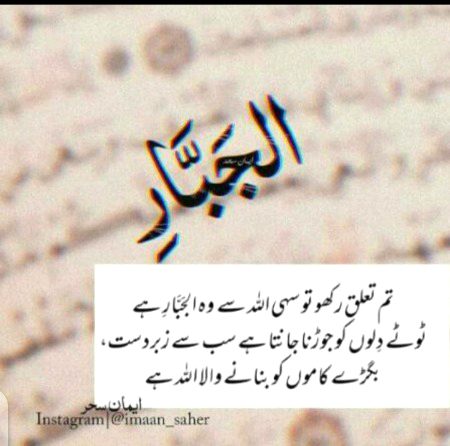 الجَبَّارِ
ایمان سحر
تم تعلق رکھو تو سہی اللہ سے وہ الجَبَّارِ ہے
ٹوٹے دِلوں کو جوڑنا جانتا ہے سب سے زبردست،
بگڑے کاموں کو بنانے والا اللہ ہے
ایمان سحر
Instagram|@imaan_saher